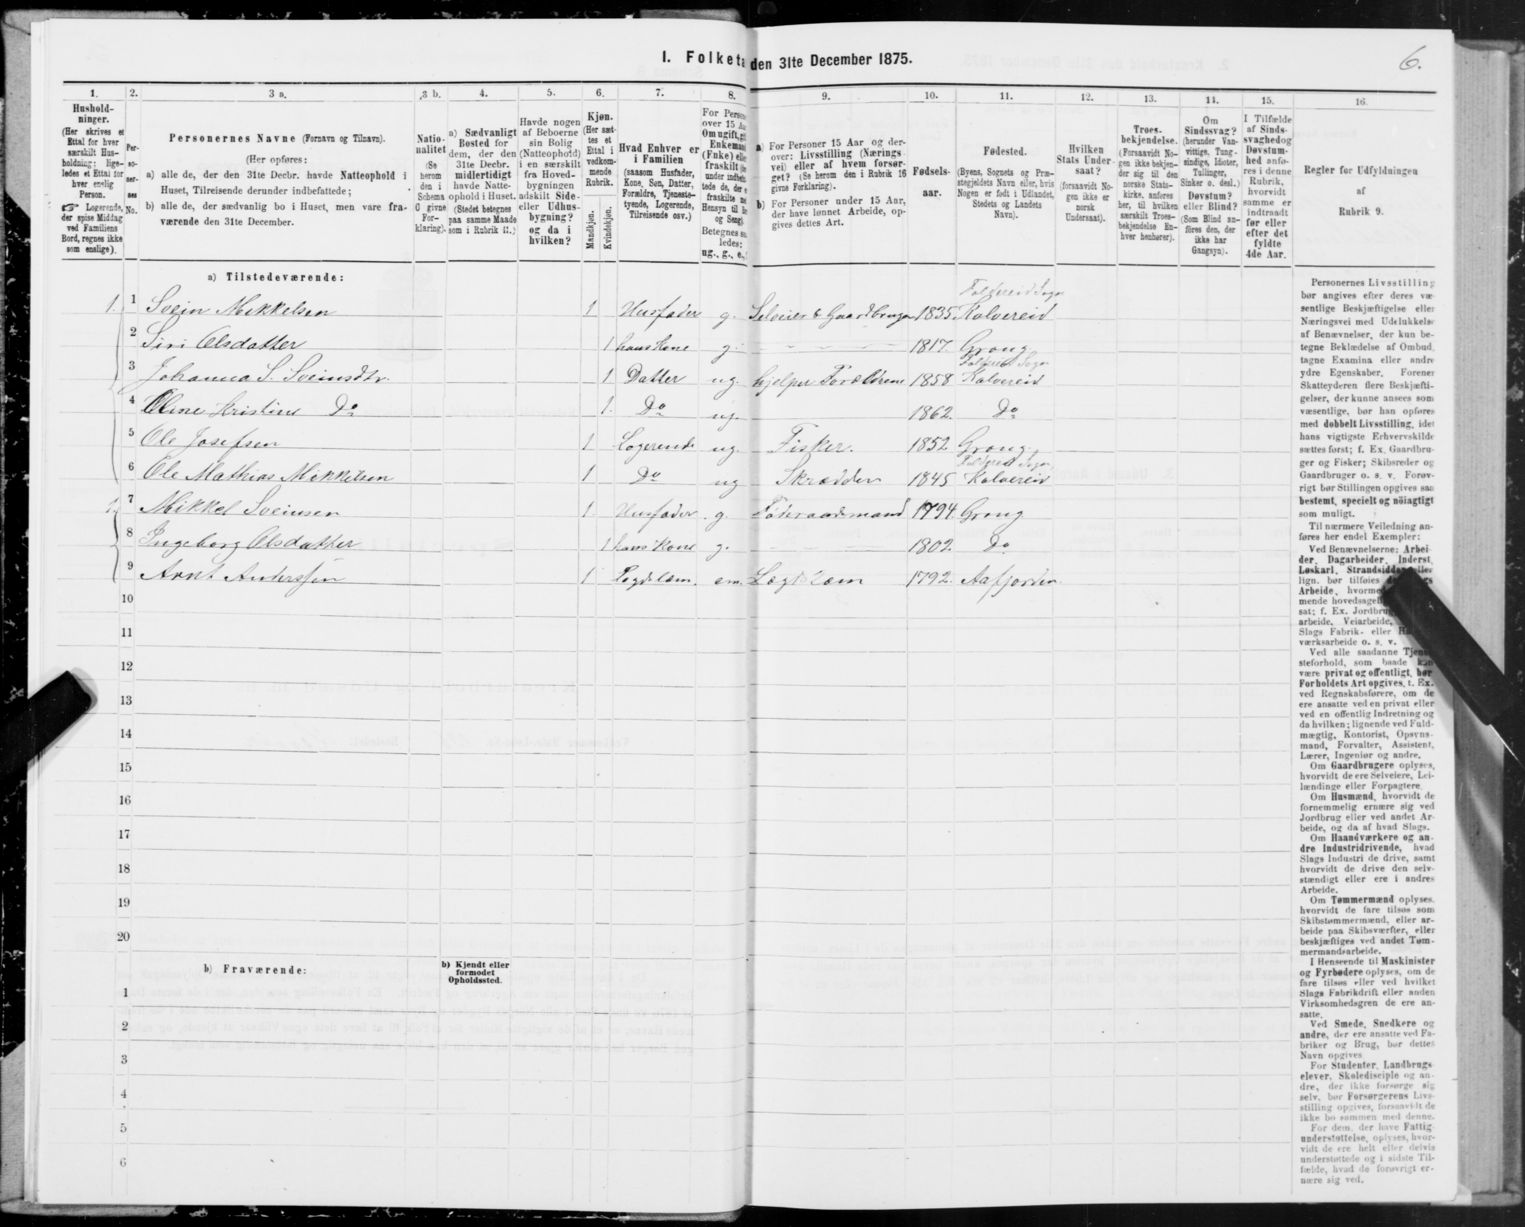 I. Folketa den 31te December 1875.
6.
1. 2. 3 a. 3 b. 4. 5. 6. 7. 8. 9. 10. 11. 12. 13. 14. 15. 16.
Hushold-
ninger.
(Her skrives et
Ettal for hver
særskilt Hus-
holdning; lige-
ledes et Ettal for
hver enslig
Person.
Logerende,
der spise Middag
ved Familiens
Bord, regnes ikke
som enslige).
Per-
so-
ner-
nes
No.
Personernes Navne (Fornavn og Tilnavn).
(Her opføres:
a) alle de, der den 31te Decbr. havde Natteophold i
Huset, Tilreisende derunder indbefattede;
b) alle de, der sædvanlig bo i Huset, men vare fra-
værende den 31te December.
Natio-
nalitet
(Se
herom
den i
Schema
C givne
For-
klaring).
a) Sædvanligt
Bosted for
dem, der den
31te Decbr.
midlertidigt
havde Natte-
ophold i Huset.
(Stedet betegnes
paa samme Maade
som i Rubrik 11.)
Havde nogen
af Beboerne
sin Bolig
(Natteophold)
i en særskilt
fra Hoved-
bygningen
adskilt Side-
eller Udhus-
bygning?
og da i
hvilken?
Kjøn.
(Her sæt-
tes et
Ettal i
vedkom-
mende
Rubrik.
Mandkjøn.
Kvindekjøn.
Hvad Enhver er
i Familien
(saasom Husfader,
Kone, Søn, Datter,
Forældre, Tjeneste-
tyende, Logerende,
Tilreisende osv.)
For Perso
over 15 Aa
Om ugift, g
Enkeman
(Enke) elle
fraskilt
Betegnes sa
ledes:
ug., g., e.,
a) For Personer 15 Aar og der-
over: Livsstilling (Nærings-
vei) eller af hvem forsør-
get? (Se herom den i Rubrik 16
givne Forklaring).
b) For Personer under 15 Aar,
der have lønnet Arbeide, op-
gives dettes Art.
Fødsels-
aar.
Fødested.
(Byens, Sognets og Præ-
stegjeldets Navn eller, hvis
Nogen er født i Udlandet,
Stedets og Landets
Navn).
Hvilken
Stats Under-
saat?
(forsaavidt No-
gen ikke er
norsk
Undersaat).
Troes-
bekjendelse.
(Forsaavidt No-
gen ikke bekjen-
der sig til den
norske Stats-
kirke, anføres
her, til hvilken
særskilt Troes-
bekjendelse En-
hver henhører).
Om
Sindssvag?
(herunder Van-
vittige, Tung-
sindige, Idioter,
Tullinger,
Sinker o. desl.)
Døvstum?
eller Blind?
(Som Blind an-
føres den, der
ikke har
Gangsyn).
I Tilfælde
af Sinds-
svaghed og
Døvstum-
hed anfø-
res i denne
Rubrik,
hvorvidt
samme er
indtraadt
før eller
efter det
fyldte
4de Aar.
Regler for Udfyldningen
af
Rubrik 9.
a) Tilstedeværende:
Foldereid Sogn
1. 1 Svein Mikkelsen 1 Husfader g. Seleier & Gaardbruger 1835 Kolvereid
2 Siri Olsdatter 1 hans Kone g. 1817. Grong
Foldereid Sogn
3 Johanna S. Sveinsdtr. 1 Datter ug. hjelper Forældrene 1858 Kolvereid
4 Oline Kristine Do 1. Do ug. 1862. Do
5 Ole Josefsen 1 Logerende ug. Fisker. 1852 Grong.
Foldereid Sogn
6 Ole Mathias Mikkelsen 1 Do ug Skrædder 1845 Kolvereid
1. 7 Mikkel Sveinsen 1 Husfader g. Føderaadsmand 1794. Grong
8 Ingeborg Olsdatter 1 hans Kone g. 1802. Do
9 Arnt Anderssen 1 Lægdslem. em. Lægdslem 1792. Aafjorden
10
11
12
13
14
15
16
17
18
19
20
b) Fraværende:
b) Kjendt eller
formodet
Opholdssted.
1
2
3
4
5
6
Personernes Livsstilling
bør angives efter deres væ-
sentlige Beskjæftigelse eller
Næringsvei med Udelukkelse
af Benævnelser, der kun be-
tegne Beklædelse af Ombud,
tagne Examina eller andre
ydre Egenskaber. Forener
Skatteyderen flere Beskjæfti-
gelser, der kunne ansees som
væsentlige, bør han opføres
med dobbelt Livsstilling, idet
hans vigtigste Erhvervskilde
sættes først; f. Ex. Gaardbru-
ger og Fisker; Skibsreder og
Gaardbruger o. s. v. Forøv-
rigt bør Stillingen opgives saa
bestemt, specielt og nöiagtigt
som muligt.
Til nærmere Veiledning an-
føres her endel Exempler:
Ved Benævnelserne: Arbei-
der, Dagarbeider, Inderst,
Løskarl, Strandsidder eller
lign. bør tilføies
Arbeide, hvormed
mende hovedsagel
sat; f. Ex. Jordbru
arbeide, Veiarbeide,
Slags Fabrik- eller
værksarbeide o. s. v.
Ved alle saadanne Tjene-
steforhold, som baade kan
være privat og offentligt, bør
Forholdets Art opgives, f. Ex.
ved Regnskabsførere, om de
ere ansatte ved en privat eller
ved en offentlig Indretning og
da hvilken; lignende ved Fuld-
mægtig, Kontorist, Opsyns-
mand, Forvalter, Assistent,
Lærer, Ingeniør og andre.
Om Gaardbrugere oplyses,
hvorvidt de ere Selveiere, Lei-
lændinge eller Forpagtere.
Om Husmænd, hvorvidt de
fornemmelig ernære sig ved
Jordbrug eller ved andet Ar-
beide, og da af hvad Slags.
Om Haandværkere og an-
dre Industridrivende, hvad
Slags Industri de drive, samt
hvorvidt de drive den selv-
stændigt eller ere i andres
Arbeide.
Om Tømmermænd oplyses,
hvorvidt de fare tilsøs som
Skibstømmermænd, eller ar-
beide paa Skibsværfter, eller
beskjæftiges ved andet Tøm-
mermandsarbeide.
I Henseende til Maskinister
og Fyrbødere oplyses, om de
fare tilsøs eller ved hvilket
Slags Fabrikdrift eller anden
Virksomhedsgren de ere an-
satte.
Ved Smede, Snedkere og
andre, der ere ansatte ved Fa-
briker og Brug, bør dettes
Navn opgives.
For Studenter, Landbrugs-
elever, Skoledisciple og an-
dre, der ikke forsørge sig
selv, bør Forsørgerens Livs-
stilling opgives, forsaavidt de
ikke bo sammen med denne.
For dem, der have Fattig-
understøttelse, oplyses, hvor-
vidt de ere helt eller delvis
understøttede og i sidste Til-
fælde, hvad de forøvrigt er-
nære sig ved.